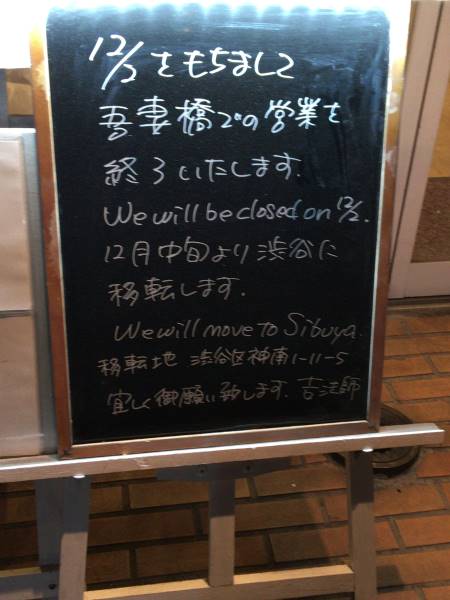 12/2をもちまして
吾妻橋での営業を
終了いたします.
We will be closed on 12/2.
12月中旬より渋谷に
移転します.
We will move to Sibuya.
移転地 渋谷区神南1-11-5
宜しく御願い致します. 吉法師